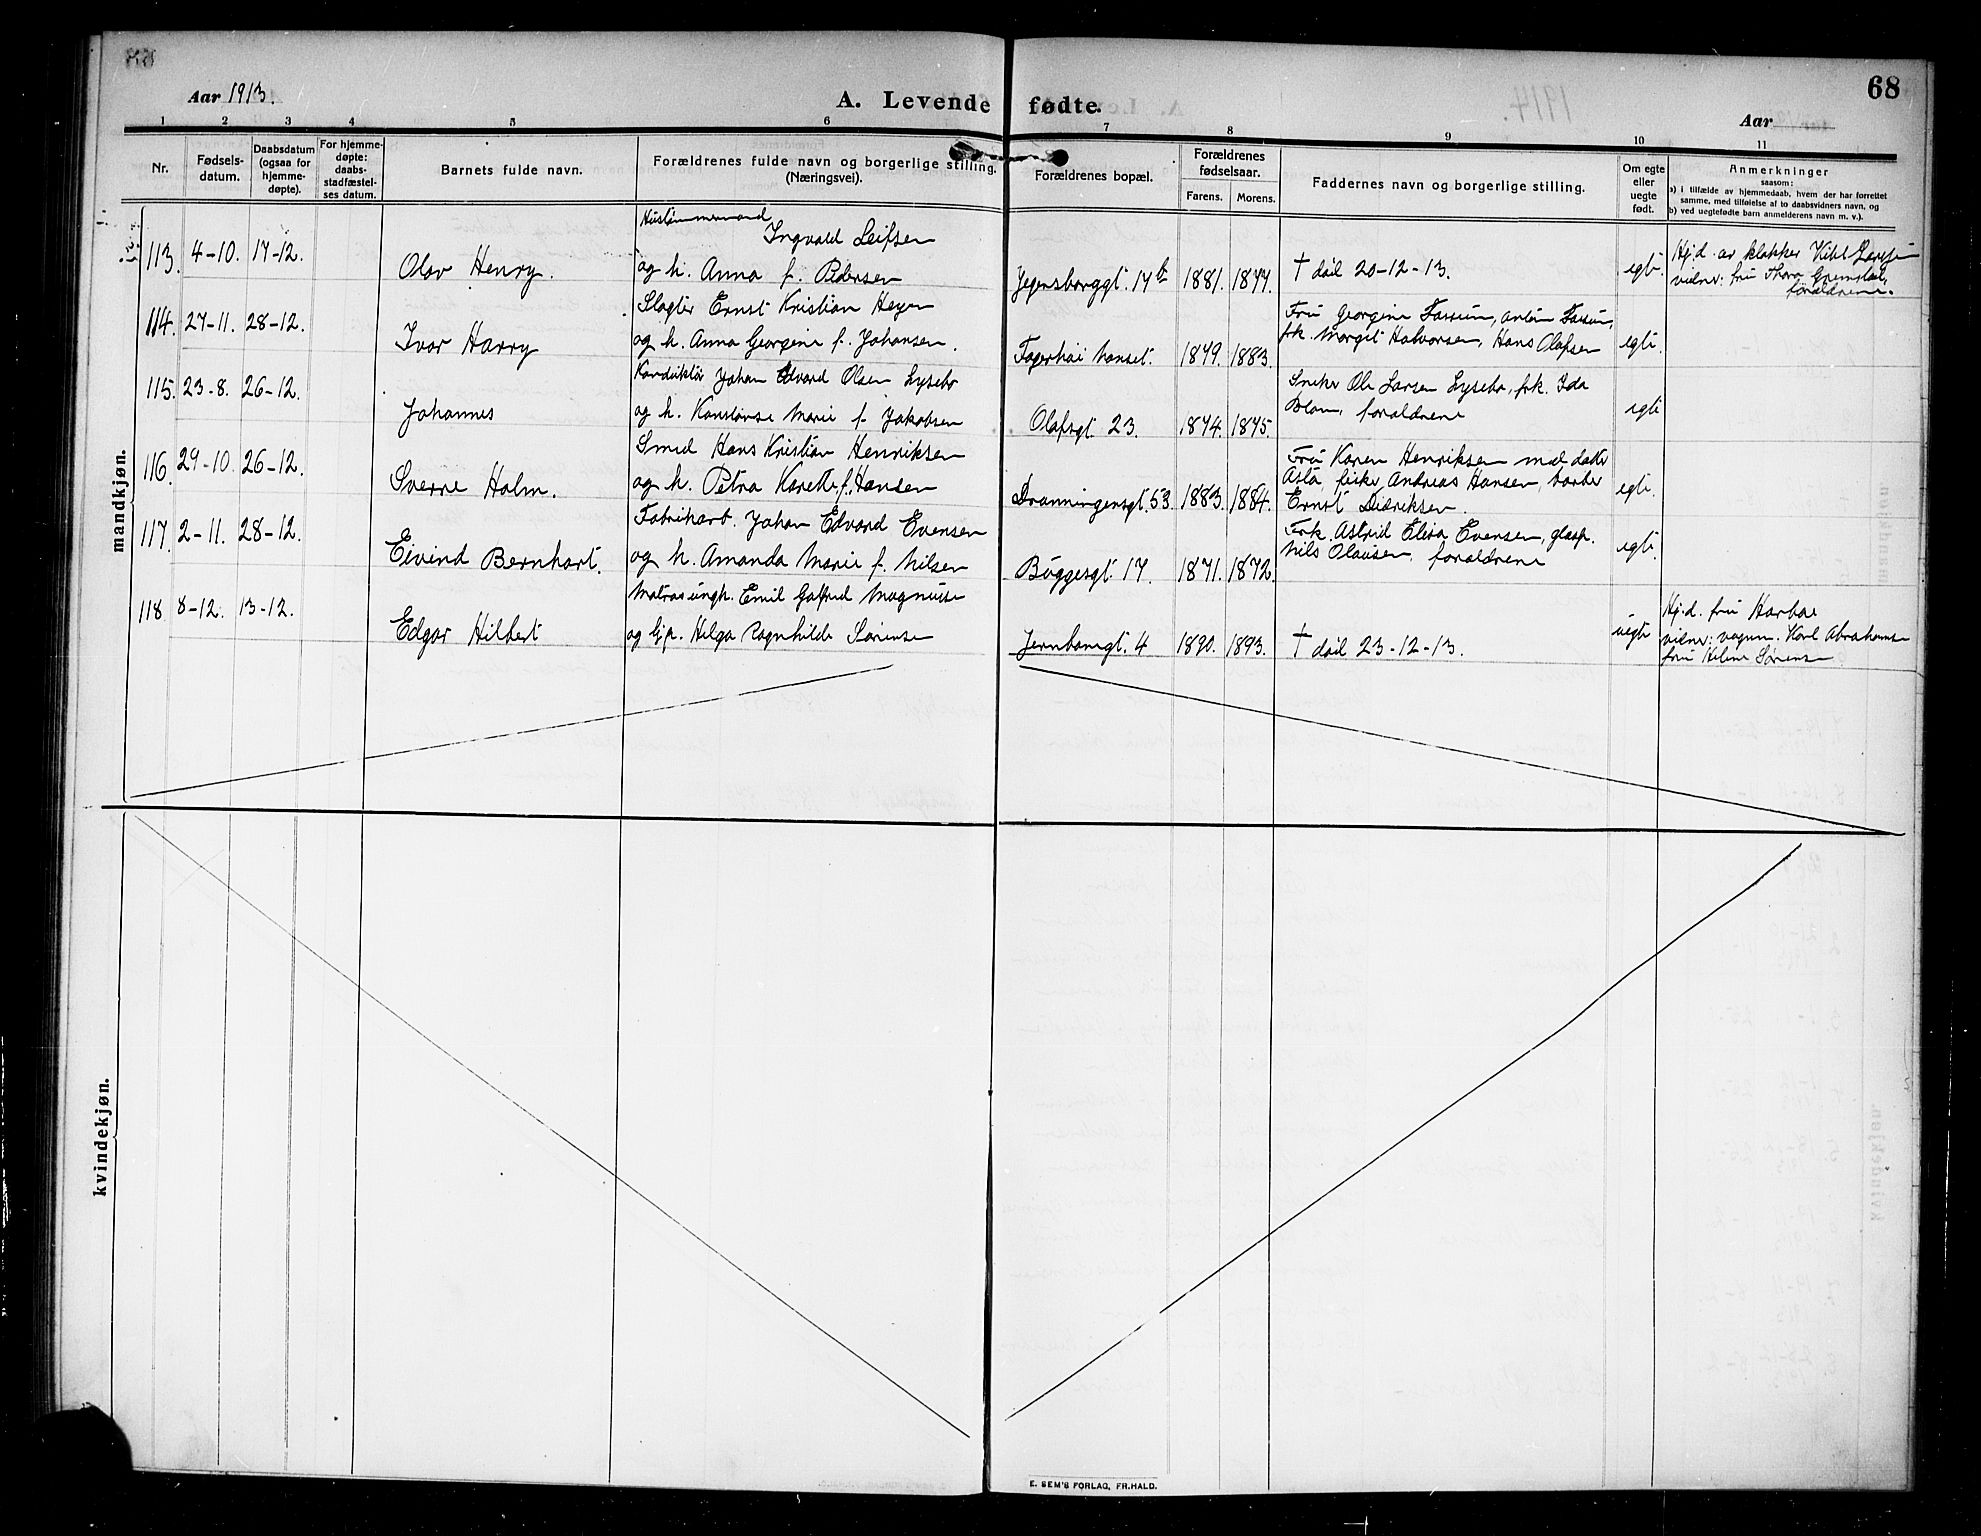 68
Aar 1913.
A. Levende fødte.
Aar
1 2 3 4 5 6 7 8 9 10 11
Nr.
Fødsels-
datum.
Daabsdatum
(ogsaa for
hjemme-
døpte).
For hjemme-
døpte:
daabs-
stadfæstel-
ses datum.
Barnets fulde navn.
Forældrenes fulde navn og borgerlige stilling.
(Næringsvei).
Forældrenes bopæl.
Forældrenes
fødselsaar.
Farens. Morens.
Faddernes navn og borgerlige stilling.
Om egte
eller
uegte
født.
Anmerkninger
saasom:
a) i tilfælde av hjemmedaab, hvem der har forrettet
samme, med tilføielse af to daabsvidners navn, og
b) ved uegtefødte barn anmelderens navn m. v.).
mandkjøn.
113. 4-10. 17-12.
Olav Henry.
Hustømmermand
Ingvald Leifsen
og h. Anna f. Pedersen
Jegersborggt. 14b 1881. 1877.
† død 20-12-13.
egte.
Hj.d. av klokker Larsen
vidner: fru Thora
forældrene.
114. 27-11. 28-12.
Ivar Harry
Slagter Ernst Kristian Heyer
og h. Anna Georgine f. Johansen.
1879. 1883.
Fru Georgine Fossum, Anton Fossum,
frk. Margit Halvorsen, Hans Olafsen
egte.
115. 23-8. 26-12.
Johannes
Konduktør Johan Edvard Olsen Lysebo
og h. Konstanse Marie f. Jakobsen
Olafsgt. 23. 1874. 1875.
Snekr Ole Larsen Lysebo, frk. Ida
forældrene
egte
116. 29-10. 26-12.
Sverre Holm.
Smed Hans Kristian Henriksen
og h. Petra Karette f. Hansen
Dronningensgt. 53. 1883. 1884.
Fru Karen Henriksen med datter
Asta, fisker Andreas Hansen,
Ernst Didriksen.
egte.
117. 2-11. 28-12.
Eivind Bernhart.
Fabrikarb. Johan Edvard Evensen
og h. Amanda Marie f. Nilsen
Buggesgt. 17. 1871. 1872.
Frk. Astrid Elisa Evensen,
Nils Olausen. forældrene
egte.
118. 8-12. 13-12.
Edgar Hilbert
Matros ungk. Emil Galfred Magnusse
og Helga Ragnhilde Sørense
Jernbanegt. 4 1890. 1893.
† død 23-12-13.
uegte
Hj.d. fru Harboe
vidner: Karl Abrahamse
fru Helene Sørense
kvindekjøn.
E. SEM'S FORLAG, FR.HALD.